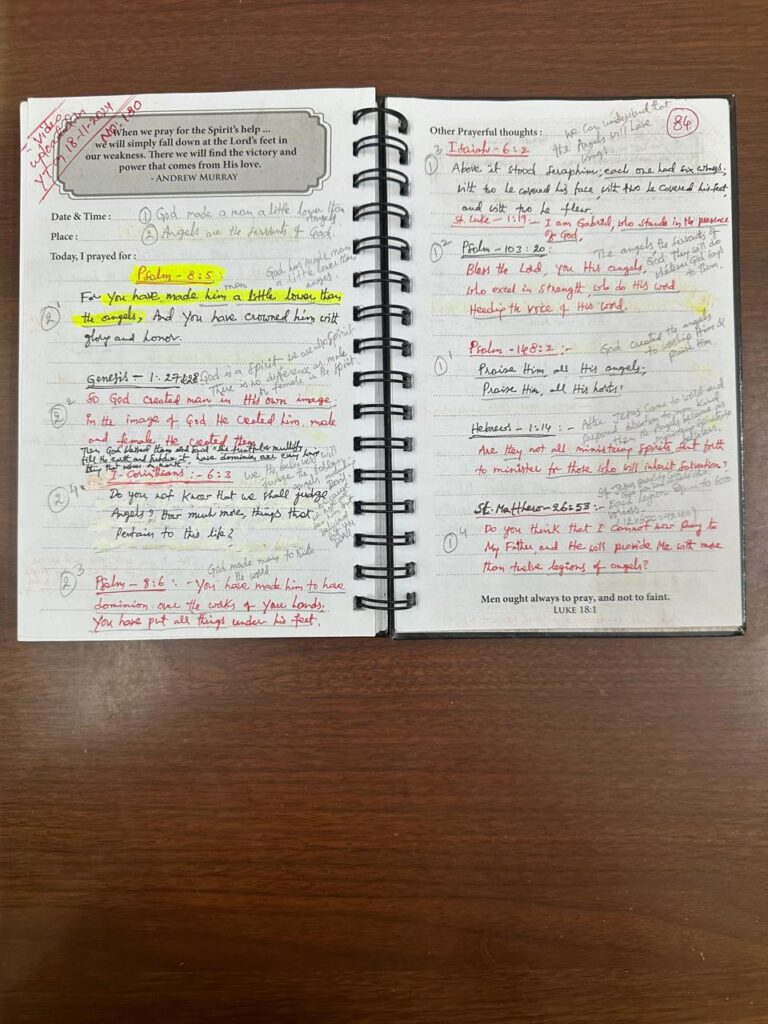 video
YT 18-11-2024
No: 180
When we pray for the Spirit's help ...
we will simply fall down at the Lord's feet in
our weakness. There we will find the victory and
power that comes from His love.
- ANDREW MURRAY
Date & Time : ① God made a man a little lower than Angels
Place : ② Angels are the servants of God
Today, I prayed for :
Psalm - 8:5 :
God has made man
a little lower than
angels.
For You have made him a little lower than
②1 the angels, And You have crowned him with
glory and honor.
Genesis - 1:27&28 God is a Spirit. we are the Spirit
There is no difference as male
or female in the Spirit.
②2 So God created man in His own image;
in the image of God He created him, male
and female He created them.
Then God blessed them and said "Be fruitful & multiply
fill the earth and subdue it, have dominion over every living
thing that moves on earth."
I - Corinthians :- 6:3
we the believers will
judge the fallen
angels
②4 Do you not know that we shall judge
Angels? How much more, things that
Pertains to this life?
God made man to rule
the world
②3 Psalm - 8:6 :- You have made him to have
dominion over the works of Your hands;
You have put all things under his feet.
Other Prayerful thoughts :
we can understand that
the Angels will have
wings.
84
①3 Isaiah - 6:2
Above it stood seraphim; each one had six wings;
with two he covered his face, with two he covered his feet,
and with two he flew.
St. Luke - 1:19 :- I am Gabriel, who stands in the presence
of God,
①2 Psalm - 103:20 :
The angels the servants of
God they will do
whatever God says
to them.
Bless the Lord, you His angels,
who excel in strength, who do His word
Heeding the voice of His word.
Psalm - 148:2 :-
God created the angels
to worship Him &
praise Him
①1 Praise Him, all His angels;
Praise Him, all His hosts!
Hebrews - 1:14 : -
After Jesus came to world and
prepared salvation to man kind
then the Angels became as
Are they not all ministering spirits sent forth
to minister for those who will inherit Salvation?
St. Matthew - 26:53 :-
①4 Do you think that I cannot now pray to
My Father and He will provide Me with more
than twelve legions of angels?
Men ought always to pray, and not to faint.
LUKE 18:1